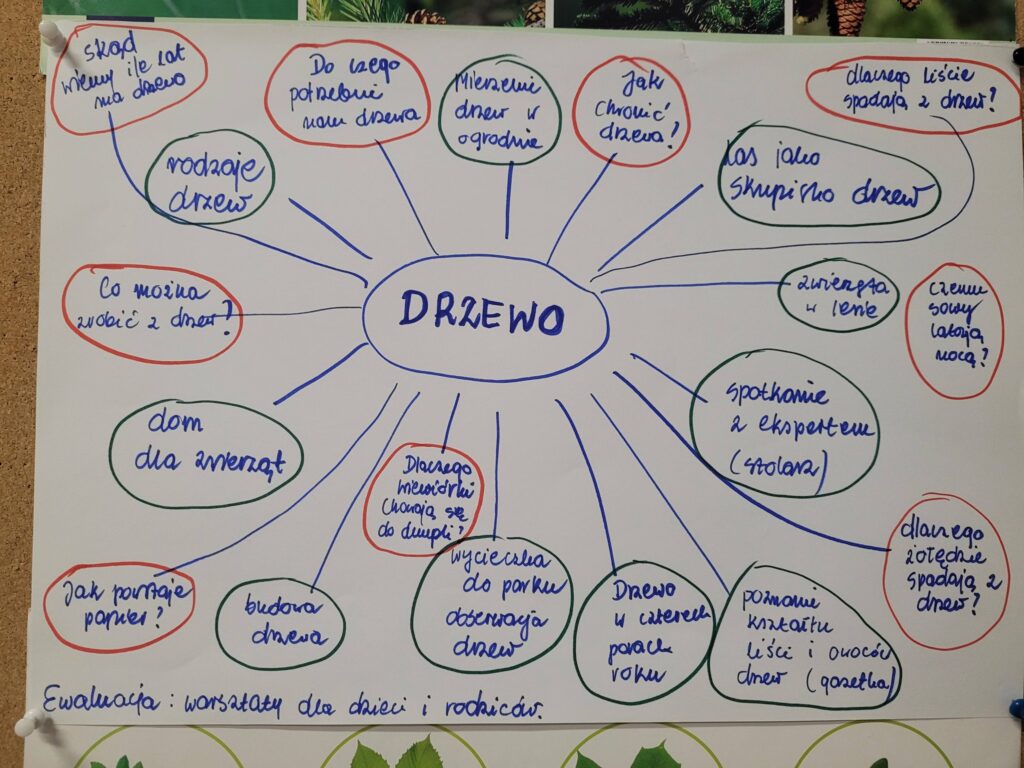 skąd
wiemy ile lat
ma drzewo
Do czego
potrzebne
nam drzewa
Mierzenie
drzew w
ogrodzie
Jak
chronić
drzewa?
dlaczego liście
spadają z drzew?
rodzaje
drzew
Las jako
skupisko drzew
Co można
zrobić z drzew?
DRZEWO
zwierzęta
w lesie
czemu
sowy
latają
nocą?
dom
dla zwierząt
spotkanie
z ekspertem
(stolarz)
Dlaczego
wiewiórki
chowają się
do dziupli?
Jak powstaje
papier?
budowa
drzewa
wycieczka
do parku
obserwacja
drzew
Drzewo
w czterech
porach
roku
poznanie
kształtu
liści i owoców
drzew (gazetka)
dlaczego
żołędzie
spadają z
drzew?
Ewaluacja: warsztaty dla dzieci i rodziców.